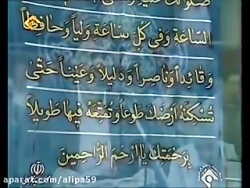 صلواتک علیه وعلی آبائه فی هذه
السّاعَةِ وَفي كُلِّ سَاعَةٍ وَلِيّاً وَحَافِظاً
وَقَائِداً وَنَاصِراً وَدَلِيلاً وَعَيْناً حَتّىٰ
تُسْكِنَهُ أَرْضَكَ طَوْعاً وَتُمَتِّعَهُ فِيهَا طَوِيلاً
بِرَحْمَتِكَ يٰا أَرْحَمَ الرّٰاحِمينَ
aparat.com/alipa59